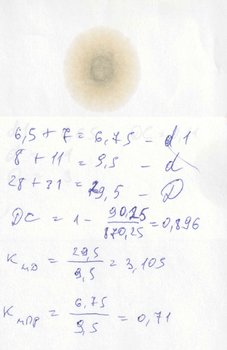 6,5 + 7 = 6,75 – d 1
8 + 11 = 9,5 – d
28 + 31 = 29,5 – D
DC = 1 - 90.25 / 870,25 = 0,896
K мD = 29,5 / 9,5 = 3,105
K мПр = 6,75 / 9,5 = 0,71